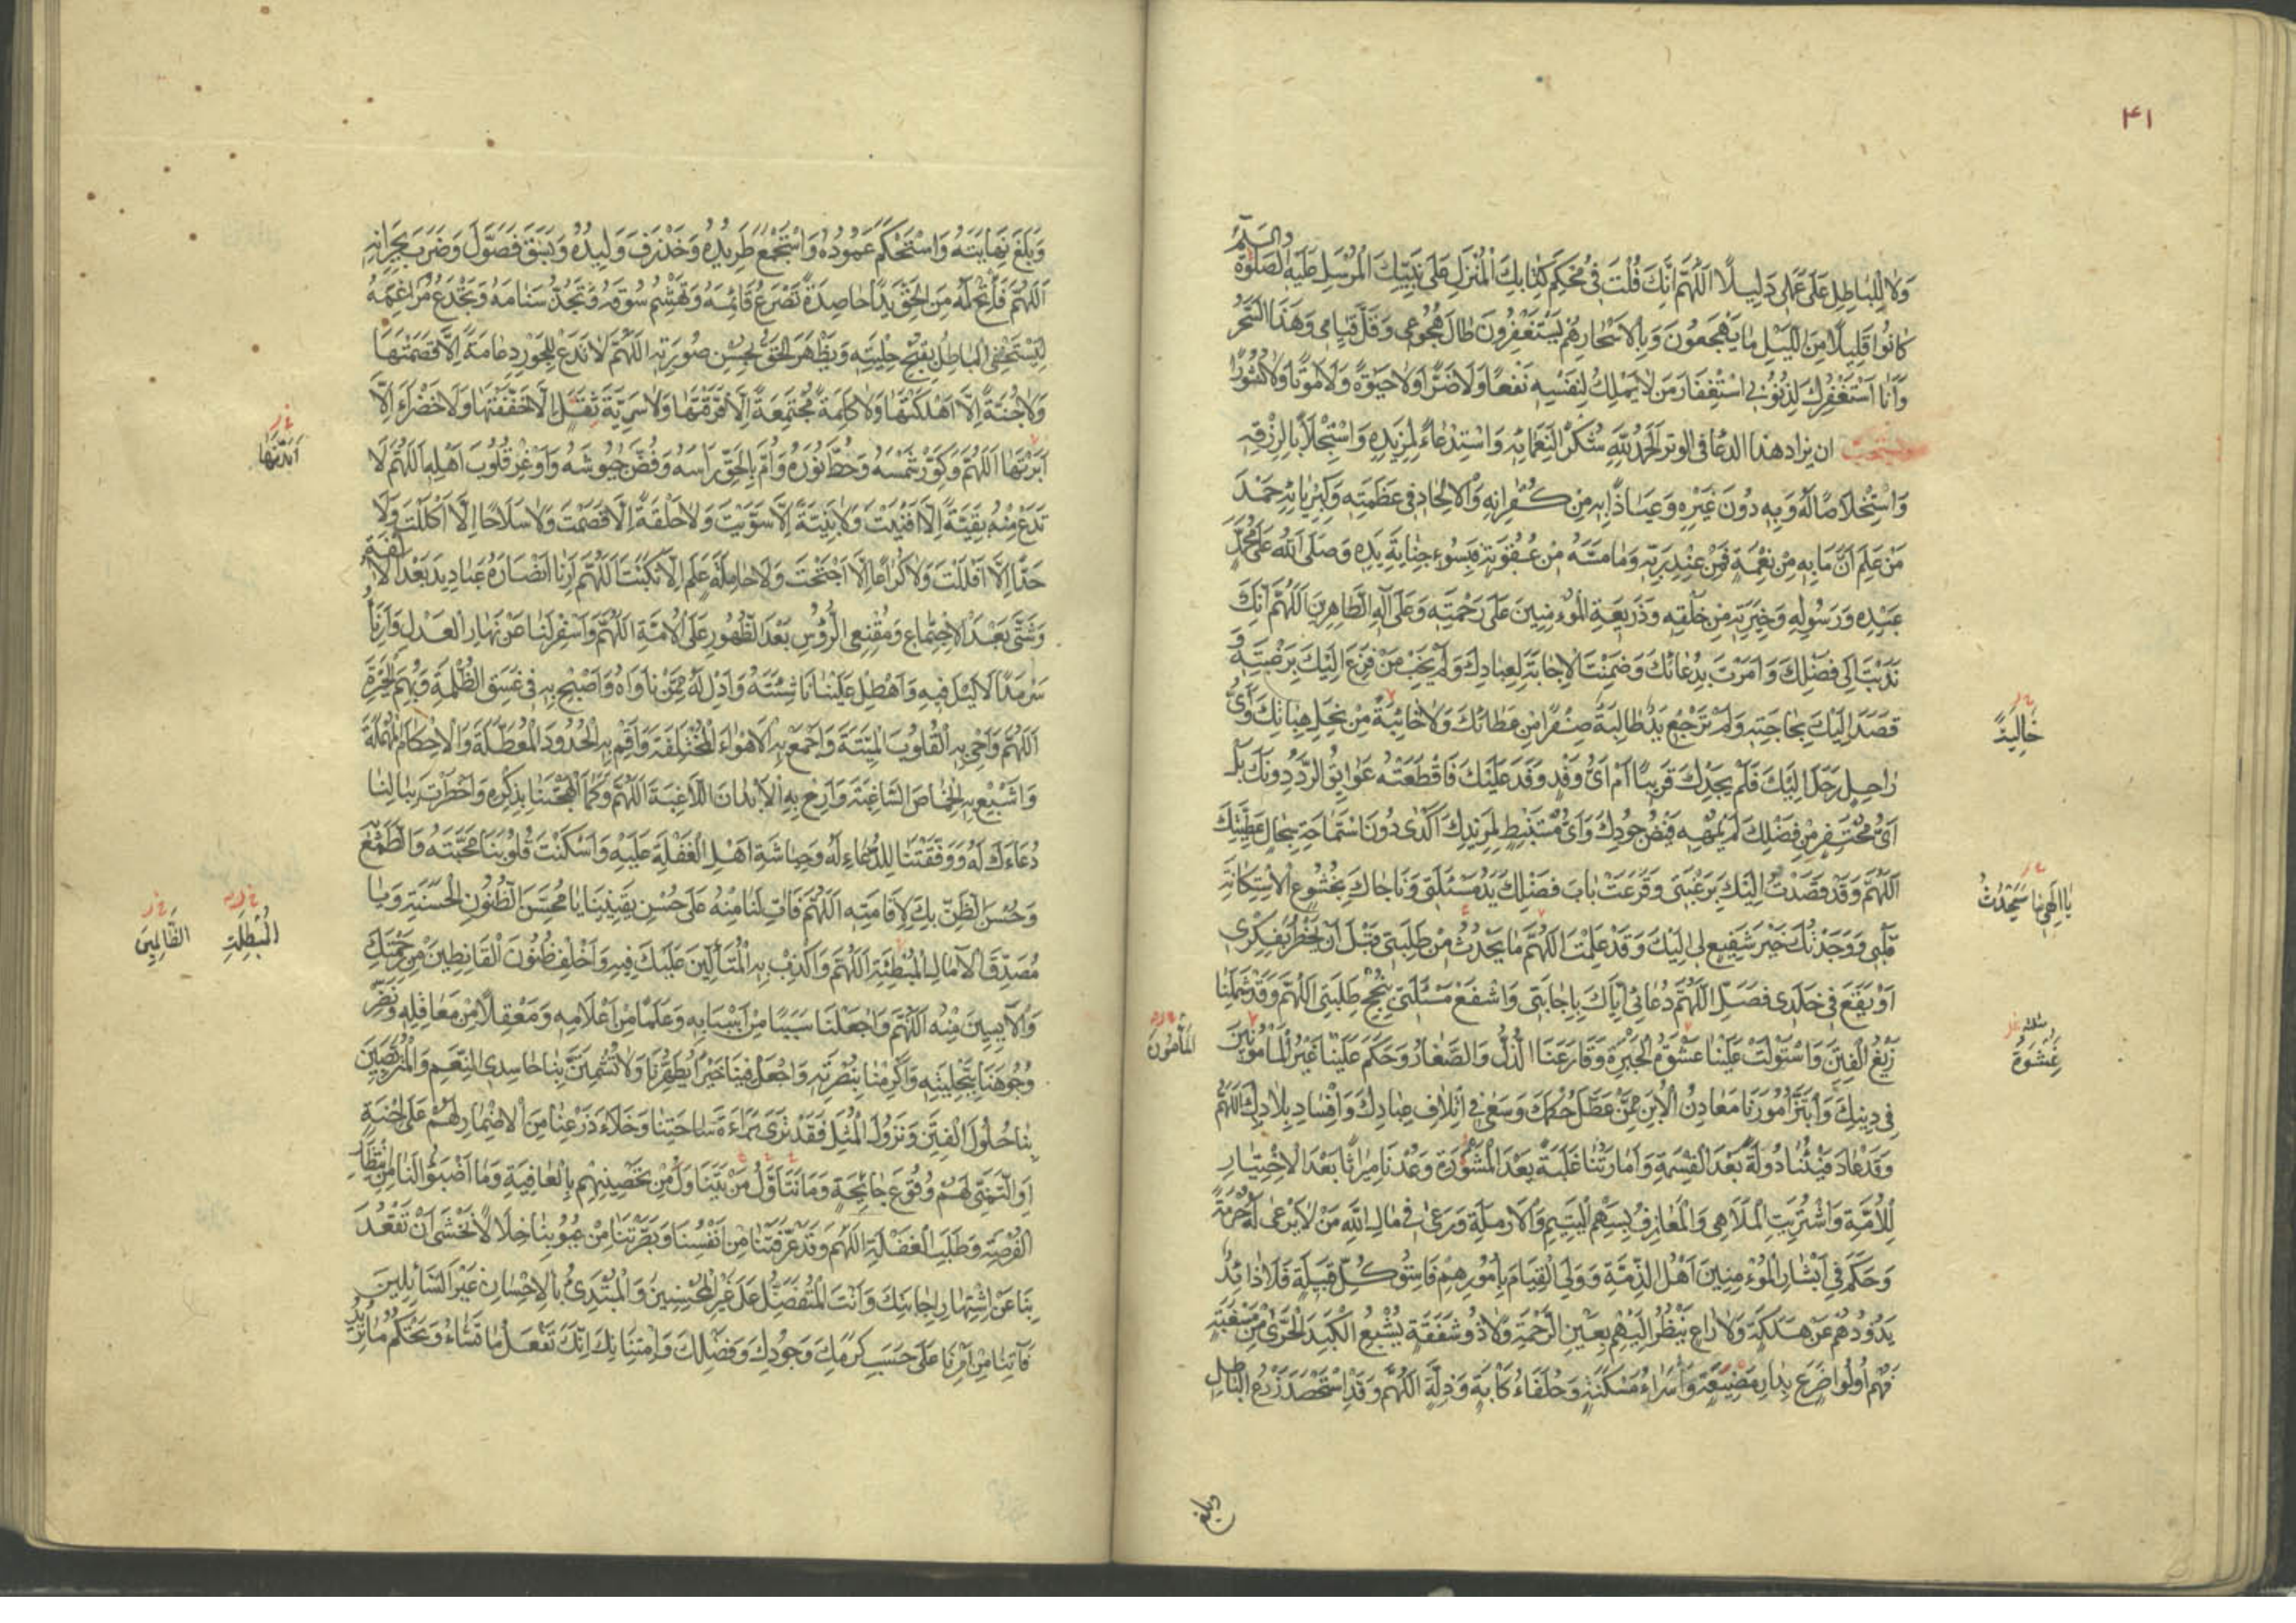 ۴۱
وَلَا لِلْبَاطِلِ عَلَى عَمَلِي دَلِيلًا اَللّٰهُمَّ اِنَّكَ قُلْتَ فِي مُحْكَمِ كِتَابِكَ الْمُنْزَلِ عَلَى نَبِيِّكَ الْمُرْسَلِ عَلَيْهِ الصَّلٰوةُ وَالسَّلَامُ
كَانُوا قَلِيلًا مِنَ اللَّيْلِ مَا يَهْجَعُونَ وَبِالْاَسْحَارِ هُمْ يَسْتَغْفِرُونَ طَالَ هُجُوعِي وَقَلَّ قِيَامِي وَهٰذَا السَّحَرُ
وَاَنَا اَسْتَغْفِرُكَ لِذُنُوبِي اسْتِغْفَارَ مَنْ لَا يَمْلِكُ لِنَفْسِهِ نَفْعًا وَلَا ضَرًّا وَلَا حَيٰوةً وَلَا مَوْتًا وَلَا نُشُورًا
ويستحب ان يزاد هذا الدعا في الوتر اَلْحَمْدُ لِلّٰهِ شُكْرًا لِنَعْمَائِهِ وَاسْتِدْعَاءً لِمَزِيدِهِ وَاسْتِجْلَابًا لِرِزْقِهِ
وَاسْتِخْلَاصًا لَهُ وَبِهِ دُونَ غَيْرِهِ وَعِيَاذًا بِهِ مِنْ كُفْرَانِهِ وَالْاِلْحَادِ فِي عَظَمَتِهِ وَكِبْرِيَائِهِ حَمْدَ
مَنْ عَلِمَ اَنَّ مَا بِهِ مِنْ نِعْمَةٍ فَمِنْ عِنْدِ رَبِّهِ وَمَا مَسَّهُ مِنْ عُقُوبَةٍ فَبِسُوءِ جِنَايَةِ يَدِهِ وَصَلَّى اللّٰهُ عَلَى مُحَمَّدٍ
عَبْدِهِ وَرَسُولِهِ وَخِيَرَتِهِ مِنْ خَلْقِهِ وَذَرِيعَةِ الْمُؤْمِنِينَ عَلَى رَحْمَتِهِ وَعَلَى آلِهِ الطَّاهِرِينَ اَللّٰهُمَّ اِنَّكَ
نَدَبْتَ اِلَى فَضْلِكَ وَاَمَرْتَ بِدُعَائِكَ وَضَمِنْتَ الْاِجَابَةَ لِعِبَادِكَ وَلَمْ يَخِبْ مَنْ فَزِعَ اِلَيْكَ بِرَغْبَتِهِ وَ
قَصَدَ اِلَيْكَ بِحَاجَتِهِ وَلَمْ تَرْجِعْ يَدٌ طَالِبَةٌ صِفْرًا مِنْ عَطَائِكَ وَلَا خَائِبَةً مِنْ نِحَلِ هِبَاتِكَ وَاَيُّ
رَاحِلٍ رَحَلَ اِلَيْكَ فَلَمْ يَجِدْكَ قَرِيبًا اَمْ اَيُّ وَفْدٍ وَفَدَ عَلَيْكَ فَاقْتَطَعَتْهُ عَوَائِقُ الرَّدِّ دُونَكَ بَلْ
اَيُّ مُحْتَفِرٍ مِنْ فَضْلِكَ لَمْ يُمْهِهِ فَيْضُ جُودِكَ وَاَيُّ مُسْتَنْبِطٍ لِمَزِيدِكَ اَكْدَى دُونَ اسْتِمَاحَةِ سِجَالِ عَطِيَّتِكَ
اَللّٰهُمَّ وَقَدْ قَصَدْتُ اِلَيْكَ بِرَغْبَتِي وَقَرَعَتْ بَابَ فَضْلِكَ يَدُ مَسْئَلَتِي وَنَاجَاكَ بِخُشُوعِ الْاِسْتِكَانَةِ
قَلْبِي وَوَجَدْتُكَ خَيْرَ شَفِيعٍ لِي اِلَيْكَ وَقَدْ عَلِمْتَ اَللّٰهُمَّ مَا يَحْدُثُ مِنْ طَلِبَتِي قَبْلَ اَنْ يَخْطُرَ بِفِكْرِي
اَوْ يَقَعَ فِي خَلَدِي فَصِلِ اللّٰهُمَّ دُعَائِي اِيَّاكَ بِاِجَابَتِي وَاشْفَعْ مَسْئَلَتِي بِنُجْحِ طَلِبَتِي اَللّٰهُمَّ وَقَدْ شَمِلَنَا
زَيْغُ الْفِتَنِ وَاسْتَوْلَتْ عَلَيْنَا غَشْوَةُ الْحَيْرَةِ وَقَارَعَنَا الذُّلُّ وَالصَّغَارُ وَحَكَمَ عَلَيْنَا غَيْرُ الْمَأْمُونِينَ
فِي دِينِكَ وَابْتَزَّ اُمُورَنَا مَعَادِنُ الْاُبَنِ مِمَّنْ عَطَّلَ حُكْمَكَ وَسَعَى فِي اِتْلَافِ عِبَادِكَ وَاِفْسَادِ بِلَادِكَ اَللّٰهُمَّ
وَقَدْ عَادَ فَيْئُنَا دُولَةً بَعْدَ الْقِسْمَةِ وَاِمَارَتُنَا غَلَبَةً بَعْدَ الْمَشْوَرَةِ وَعُدْنَا مِيرَاثًا بَعْدَ الْاِخْتِيَارِ
لِلْاُمَّةِ وَاشْتُرِيَتِ الْمَلَاهِي وَالْمَعَازِفُ بِسَهْمِ الْيَتِيمِ وَالْاَرْمَلَةِ وَرَعَى فِي مَالِ اللّٰهِ مَنْ لَا يَرْعَى لَهُ حُرْمَةً
وَحَكَمَ فِي اَبْشَارِ الْمُؤْمِنِينَ اَهْلُ الذِّمَّةِ وَوَلِيَ الْقِيَامَ بِاُمُورِهِمْ فَاسِقُ كُلِّ قَبِيلَةٍ فَلَا ذَائِدٌ
يَذُودُهُمْ عَنْ هَلَكَةٍ وَلَا رَاعٍ يَنْظُرُ اِلَيْهِمْ بِعَيْنِ الرَّحْمَةِ وَلَا ذُو شَفَقَةٍ يُشْبِعُ الْكَبِدَ الْحَرَّى مِنْ مَسْغَبَةٍ
فَهُمْ اُولُوا ضَرَعٍ بِدَارِ مَضِيعَةٍ وَاُسَرَاءُ مَسْكَنَةٍ وَحُلَفَاءُ كَابَةٍ وَذِلَّةٍ اَللّٰهُمَّ وَقَدِ اسْتَحْصَدَ زَرْعُ الْبَاطِلِ
خَالِيَةً
يَا اِلٰهِي مَا سَيَحْدُثُ
غَشْوَةُ
الْمَأْمُونُ
وبلغ
وَبَلَغَ نِهَايَتَهُ وَاسْتَحْكَمَ عَمُودُهُ وَاسْتَجْمَعَ طَرِيدُهُ وَخَذْرَفَ وَلِيدُهُ وَبَسَقَ فَصَوَّلَ وَضَرَبَ بِجِرَانِهِ
اَللّٰهُمَّ فَاَتِحْ لَهُ مِنَ الْحَقِّ يَدًا حَاصِدَةً تَصْرَعُ قَائِمَهُ وَتَهْشِمُ سُوقَهُ وَتَجُذُّ سَنَامَهُ وَتَجْدَعُ مَرَاغِمَهُ
لِيَسْتَخْفِيَ الْبَاطِلُ بِقُبْحِ حِلْيَتِهِ وَيَظْهَرَ الْحَقُّ بِحُسْنِ صُورَتِهِ اَللّٰهُمَّ لَا تَدَعْ لِلْجَوْرِ دِعَامَةً اِلَّا قَصَمْتَهَا
وَلَا جُنَّةً اِلَّا اَهْلَكْتَهَا وَلَا كَلِمَةً مُجْتَمِعَةً اِلَّا فَرَّقْتَهَا وَلَا سَرِيَّةَ ثِقْلٍ اِلَّا خَفَّفْتَهَا وَلَا خَضْرَاءَ اِلَّا
اَبَرْتَهَا اَللّٰهُمَّ وَكَوِّرْ شَمْسَهُ وَحُطَّ نُورَهُ وَاُمَّ بِالْحَقِّ رَاسَهُ وَفُضَّ جُيُوشَهُ وَاَوْغِرْ قُلُوبَ اَهْلِهِ اَللّٰهُمَّ لَا
تَدَعْ مِنْهُ بَقِيَّةً اِلَّا اَفْنَيْتَ وَلَا بَنِيَّةً اِلَّا سَوَّيْتَ وَلَا حَلْقَةً اِلَّا قَصَمْتَ وَلَا سِلَاحًا اِلَّا اَكْلَلْتَ وَلَا
حَدًّا اِلَّا اَفْلَلْتَ وَلَا كُرَاعًا اِلَّا اجْتَحْتَ وَلَا حَامِلَةَ عَلَمٍ اِلَّا نَكَّسْتَ اَللّٰهُمَّ اَرِنَا اَنْصَارَهُ عَبَادِيدَ بَعْدَ الْاُلْفَةِ
وَشَتَّى بَعْدَ الْاِجْتِمَاعِ وَمُقْنِعِي الرُّؤُسِ بَعْدَ الظُّهُورِ عَلَى الْاُمَّةِ اَللّٰهُمَّ وَاَسْفِرْ لَنَا عَنْ نَهَارِ الْعَدْلِ وَاَرِنَاهُ
سَرْمَدًا لَا لَيْلَ فِيهِ وَاَهْطِلْ عَلَيْنَا نَاشِئَتَهُ وَاَدِلْ لَهُ مِمَّنْ نَاوَاهُ وَاَصْبِحْ بِهِ فِي غَسَقِ الظُّلْمَةِ وَبُهَمِ الْحَيْرَةِ
اَللّٰهُمَّ وَاَحْيِ بِهِ الْقُلُوبَ الْمَيْتَةَ وَاجْمَعْ بِهِ الْاَهْوَاءَ الْمُخْتَلِفَةَ وَاَقِمْ بِهِ الْحُدُودَ الْمُعَطَّلَةَ وَالْاَحْكَامَ الْمُهْمَلَةَ
وَاَشْبِعْ بِهِ الْخِمَاصَ السَّاغِبَةَ وَاَرِحْ بِهِ الْاَبْدَانَ اللَّاغِبَةَ اَللّٰهُمَّ وَكَمَا اَلْهَجْتَنَا بِذِكْرِهِ وَاَخْطَرْتَ بِبَالِنَا
دُعَاءَكَ لَهُ وَوَفَّقْتَنَا لِلدُّعَاءِ لَهُ وَحِيَاشَةِ اَهْلِ الْغَفْلَةِ عَلَيْهِ وَاَسْكَنْتَ قُلُوبَنَا مَحَبَّتَهُ وَالطَّمَعَ
وَحُسْنَ الظَّنِّ بِكَ لِاِقَامَتِهِ اَللّٰهُمَّ فَاٰتِ لَنَا مِنْهُ عَلَى حُسْنِ يَقِينِنَا يَا مُحَسِّنَ الظُّنُونِ الْحَسَنَةِ وَيَا
مُصَدِّقَ الْآمَالِ الْمُبْطِئَةِ اَللّٰهُمَّ وَاَكْذِبْ بِهِ الْمُتَأَلِّينَ عَلَيْكَ فِيهِ وَاَخْلِفْ ظُنُونَ الْقَانِطِينَ مِنْ رَحْمَتِكَ
وَالْآيِسِينَ مِنْهُ اَللّٰهُمَّ وَاجْعَلْنَا سَبَبًا مِنْ اَسْبَابِهِ وَعَلَمًا مِنْ اَعْلَامِهِ وَمَعْقِلًا مِنْ مَعَاقِلِهِ وَنَضِّرْ
وُجُوهَنَا بِتَحْلِيَتِهِ وَاَكْرِمْنَا بِنُصْرَتِهِ وَاجْعَلْ فِينَا خَيْرًا يُطَهِّرُنَا وَلَا تُشْمِتَنَّ بِنَا حَاسِدِي النِّعَمِ وَالْمُتَرَبِّصِينَ
بِنَا حُلُولَ الْفِتَنِ وَنُزُولَ الْمُثُلِ فَقَدْ تَرَى بَرَاءَةَ سَاحَتِنَا وَخَلَاءَ ذَرْعِنَا مِنَ الْاِضْمَارِ لَهُمْ عَلَى اِحْنَةٍ
اَوِ التَّمَنِّي لَهُمْ وُقُوعَ جَائِحَةٍ وَمَا تَنَاوَلَ مِنْ تَحْصِينِهِمْ بِالْعَافِيَةِ وَمَا اَضْبَؤُا لَنَا مِنِ انْتِظَارِ
الْفُرْصَةِ وَطَلَبِ الْغَفْلَةِ اَللّٰهُمَّ وَقَدْ عَرَّفْتَنَا مِنْ اَنْفُسِنَا وَبَصَّرْتَنَا مِنْ عُيُوبِنَا خِلَالًا نَخْشَى اَنْ تَقْعُدَ
بِنَا عَنِ اشْتِهَارِ اِجَابَتِكَ وَاَنْتَ الْمُتَفَضِّلُ عَلَى غَيْرِ الْمُحْسِنِينَ وَالْمُبْتَدِئُ بِالْاِحْسَانِ غَيْرَ السَّائِلِينَ
فَاٰتِنَا مِنْ اَمْرِنَا عَلَى حَسَبِ كَرَمِكَ وَجُودِكَ وَفَضْلِكَ وَامْتِنَانِكَ اِنَّكَ تَفْعَلُ مَا تَشَاءُ وَتَحْكُمُ مَا تُرِيدُ
اَبَدْتَهَا
الْمُبْطِلَةِ